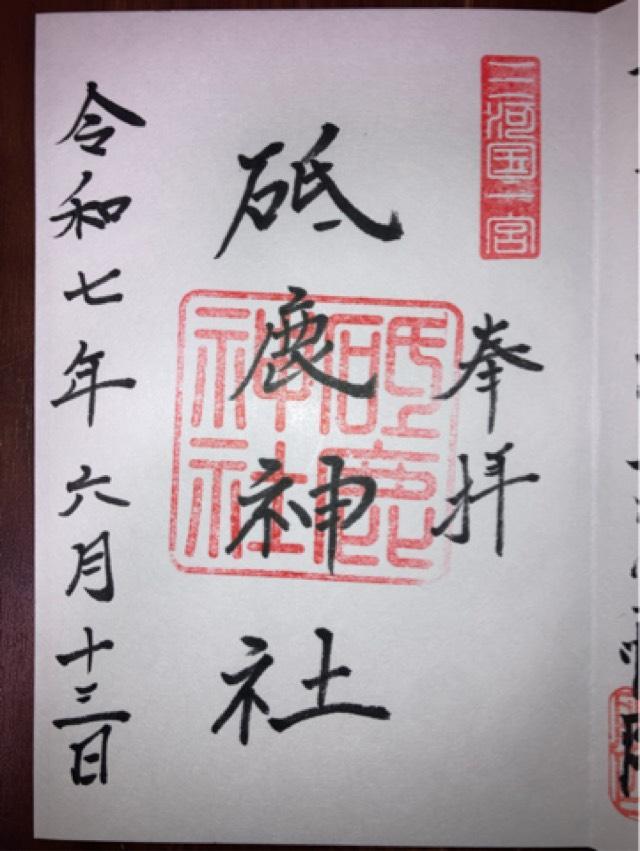 三河国一宮
奉拝
砥鹿神社
砥鹿神社
令和七年六月十三日